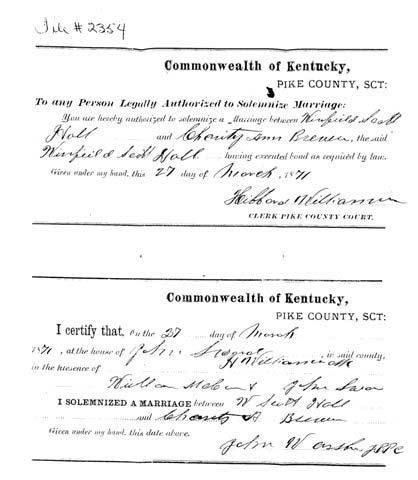 File # 2354
Commonwealth of Kentucky,
PIKE COUNTY, SCT:
To any Person Legally Authorized to Solemnize Marriage:
You are hereby authorized to solemnize a Marriage between Winfield Scott
Hall and Charity Ann, the said
Winfield Scott Hall having executed bond as required by law.
Given under my hand, this 27 day of March, 1871
Hibbard Williamson
CLERK PIKE COUNTY COURT.
Commonwealth of Kentucky,
PIKE COUNTY, SCT:
I certify that, On the 27 day of March
1871, at the house of John, in said county,
in the presence of
William John
I SOLEMNIZED A MARRIAGE between W Scott Hall
and Charity A
Given under my hand, this date above.
John W